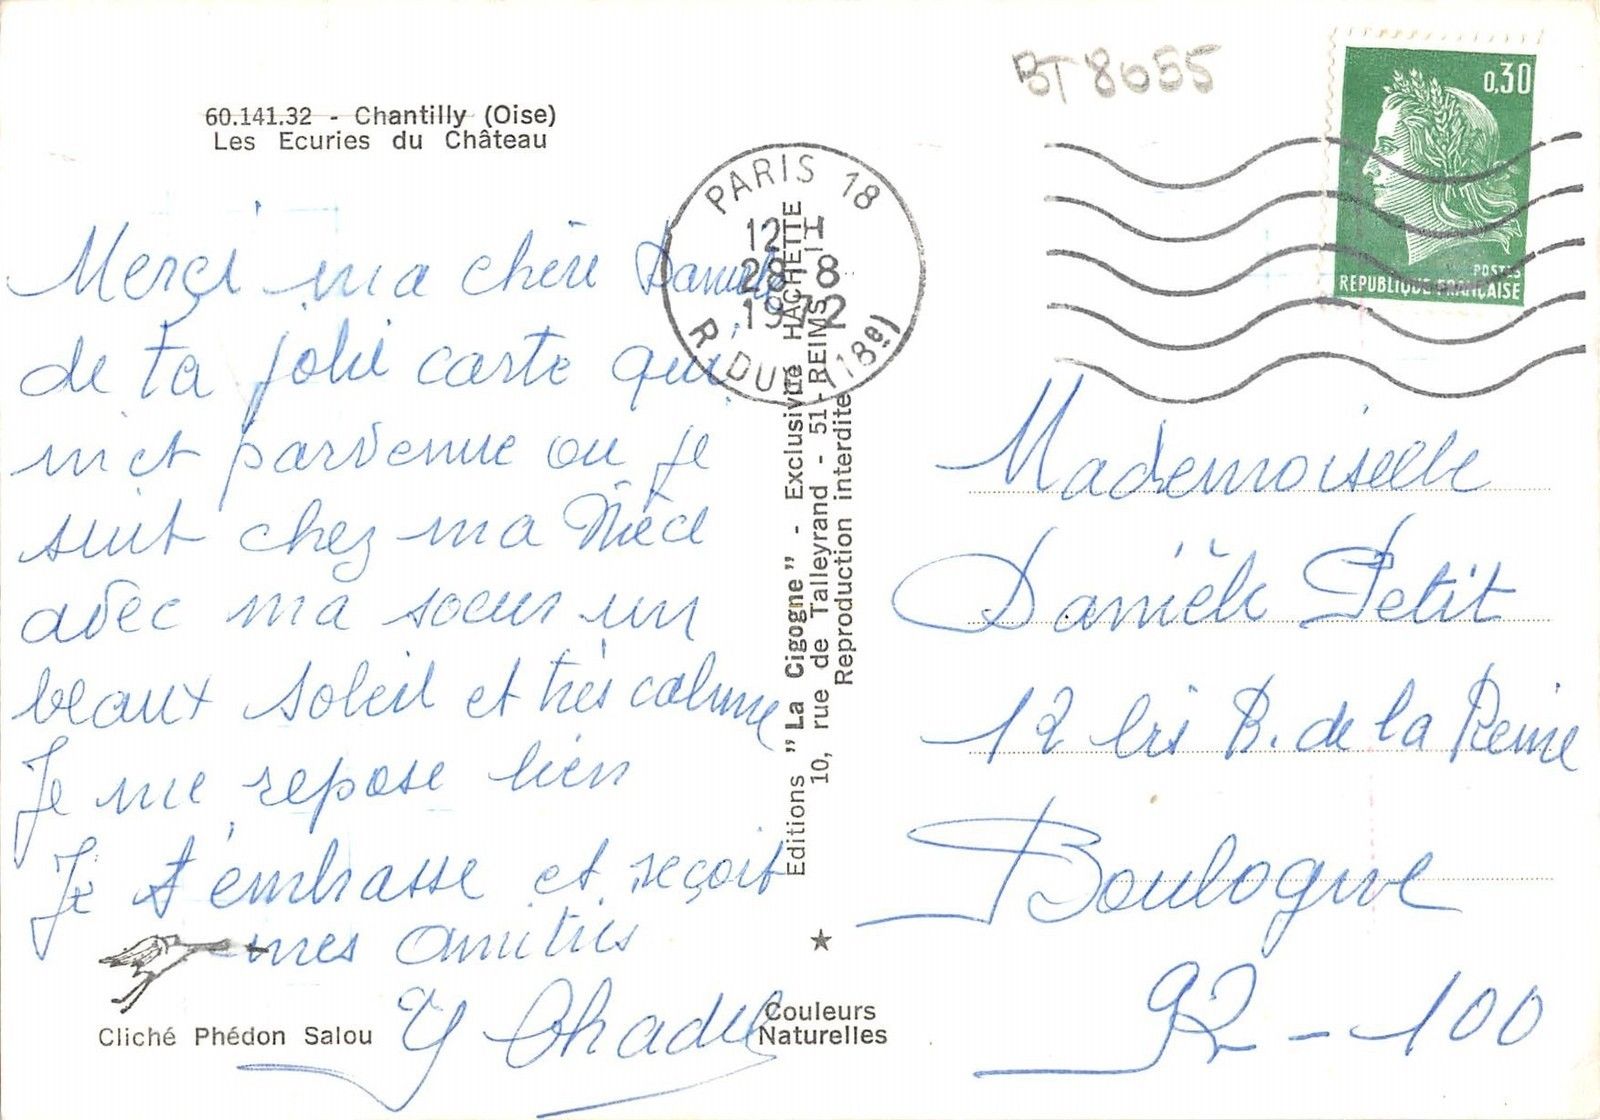 BT 8655
0,30
POSTES
REPUBLIQUE FRANÇAISE
60.141.32 - Chantilly (Oise)
Les Ecuries du Château
PARIS 18
12 H
28 - 8
1972
R. DUC (18e)
Merçi ma chère Danièle
de ta jolie carte qui
m'et parvenue ou je
suit chez ma Nièce
avec ma soeur un
beaux soleil et très calme
Je me repose bien
Je t'embrasse et reçoit
mes amitiés
Editions "La Cigogne" - Exclusivité HACHETTE
10, rue de Talleyrand - 51 - REIMS
Reproduction interdite
Mademoiselle
Danièle Petit
12 bis R. de la Reine
Boulogne
92-100
Cliché Phédon Salou
Couleurs
Naturelles